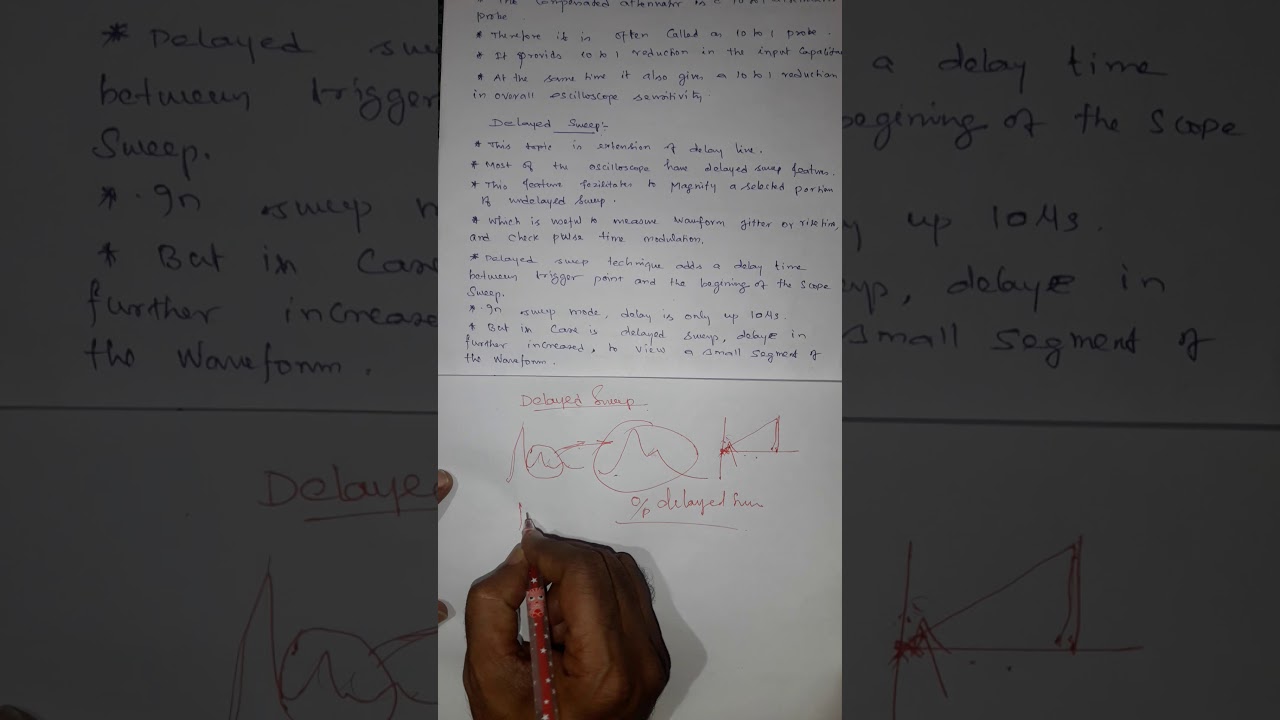 probe.
* Therefore it is often called as 10 to 1 probe.
* It provids 10 to 1 reduction in the input Capacitan
* At the same time it also gives a 10 to 1 reduction
in overall oscilloscope sensitivity.
Delayed Sweep:-
* This topic is extension of delay line.
* Most of the oscilloscope have delayed sweep features.
* This feature facilitates to Magnify a selected portion
of undelayed sweep.
* Which is useful to measure waveform jitter or rise time,
and check pulse time modulation.
* Delayed sweep technique adds a delay time
between trigger point and the begining of the scope
Sweep.
* In sweep mode, delay is only up 10 Ms.
* But in Case is delayed sweep, delay in
further increased, to view a small segment of
the Waveform.
Delayed Sweep
O/p delayed